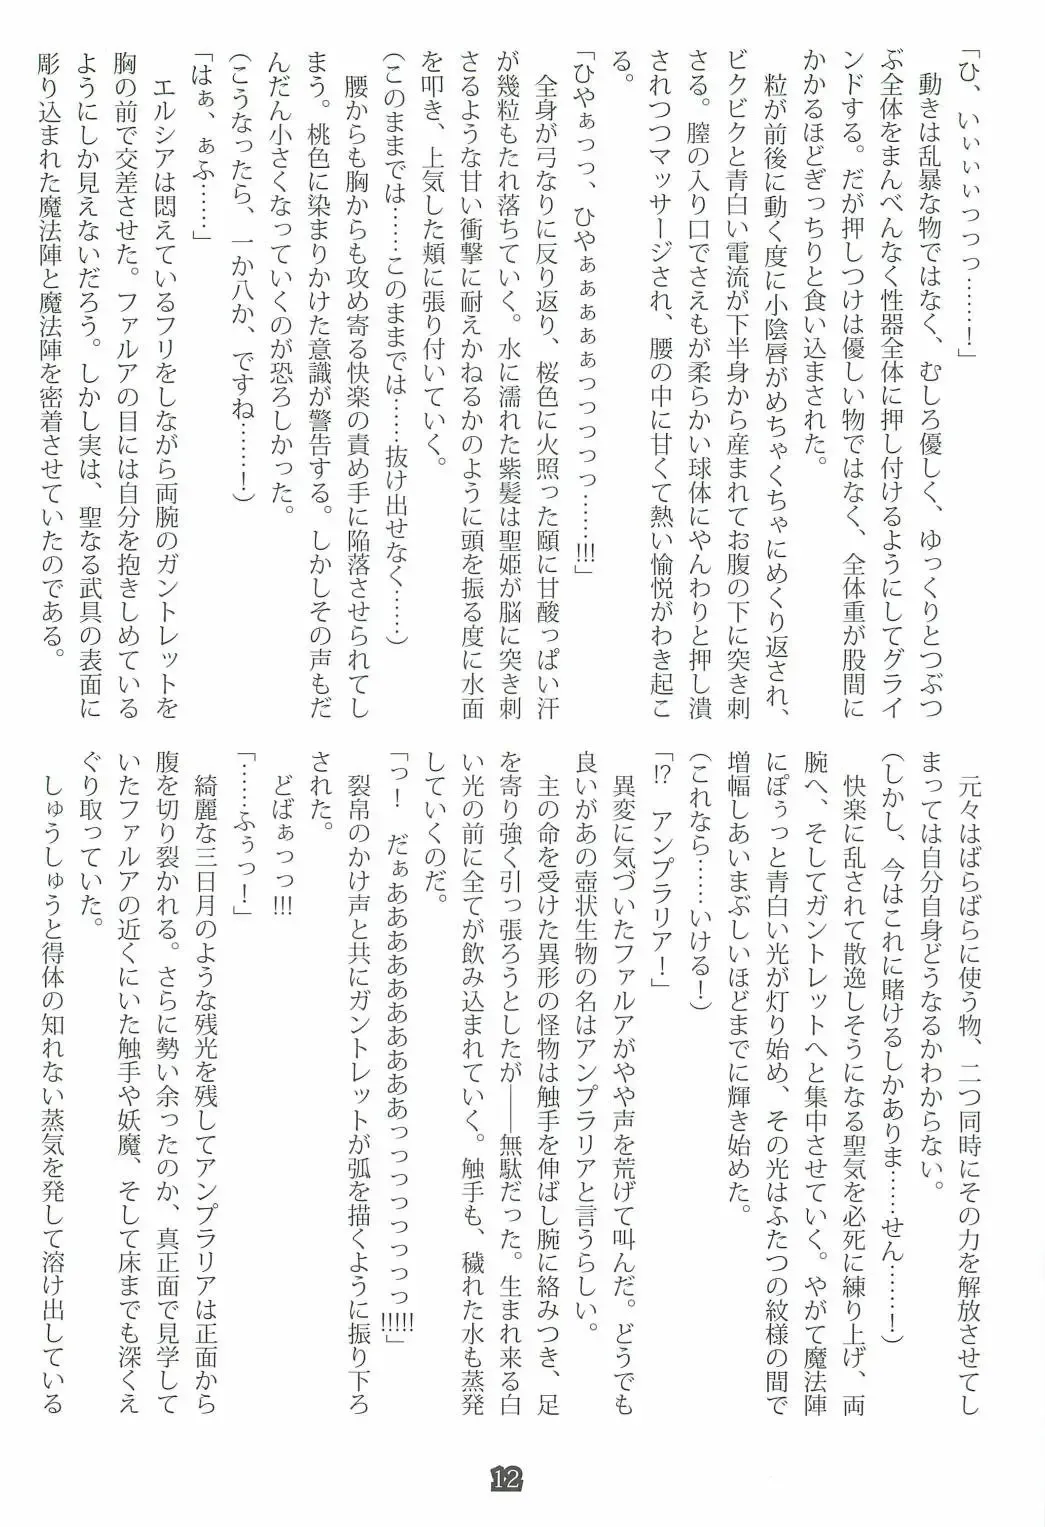 「ひ、いぃぃぃっっっ……！」
動きは乱暴な物ではなく、むしろ優しく、ゆっくりとつぶつ
ぶ全体をまんべんなく性器全体に押し付けるようにしてグライ
ンドする。だが押しつけは優しい物ではなく、全体重が股間に
かかるほどぎっちりと食い込まされた。
粒が前後に動く度に小陰唇がめちゃくちゃにめくり返され、
ビクビクと青白い電流が下半身から産まれてお腹の下に突き刺
さる。膣の入り口でさえもが柔らかい球体にやんわりと押し潰
されつつマッサージされ、腰の中に甘くて熱い愉悦がわき起こ
る。
「ひやぁっっ、ひやぁぁぁぁぁっっっっっ……!!!」
全身が弓なりに反り返り、桜色に火照った頤に甘酸っぱい汗
が幾粒もたれ落ちていく。水に濡れた紫髪は聖姫が脳に突き刺
さるような甘い衝撃に耐えかねるかのように頭を振る度に水面
を叩き、上気した頬に張り付いていく。
(このままでは……このままでは……抜け出せなく……)
腰からも胸からも攻め寄る快楽の責め手に陥落させられてし
まう。桃色に染まりかけた意識が警告する。しかしその声もだ
んだん小さくなっていくのが恐ろしかった。
(こうなったら、一か八か、ですね……！)
「はぁ、ぁふ……」
エルシアは悶えているフリをしながら両腕のガントレットを
胸の前で交差させた。ファルアの目には自分を抱きしめている
ようにしか見えないだろう。しかし実は、聖なる武具の表面に
彫り込まれた魔法陣と魔法陣を密着させていたのである。
元々はばらばらに使う物、二つ同時にその力を解放させてし
まっては自分自身どうなるかわからない。
(しかし、今はこれに賭けるしかありま……せん……！)
快楽に乱されて散逸しそうになる聖気を必死に練り上げ、両
腕へ、そしてガントレットへと集中させていく。やがて魔法陣
にぽぅっと青白い光が灯り始め、その光はふたつの紋様の間で
増幅しあいまぶしいほどまでに輝き始めた。
(これなら……いける！)
「!?　アンプラリア！」
異変に気づいたファルアがやや声を荒げて叫んだ。どうでも
良いがあの壺状生物の名はアンプラリアと言うらしい。
主の命を受けた異形の怪物は触手を伸ばし腕に絡みつき、足
を寄り強く引っ張ろうとしたが――無駄だった。生まれ来る白
い光の前に全てが飲み込まれていく。触手も、穢れた水も蒸発
していくのだ。
「っ！　だぁあああああああああっっっっっっっ!!!!!」
裂帛のかけ声と共にガントレットが弧を描くように振り下ろ
された。
どばぁっっ!!!
「……ふぅっ！」
綺麗な三日月のような残光を残してアンプラリアは正面から
腹を切り裂かれる。さらに勢い余ったのか、真正面で見学して
いたファルアの近くにいた触手や妖魔、そして床までも深くえ
ぐり取っていた。
しゅうしゅうと得体の知れない蒸気を発して溶け出している
12